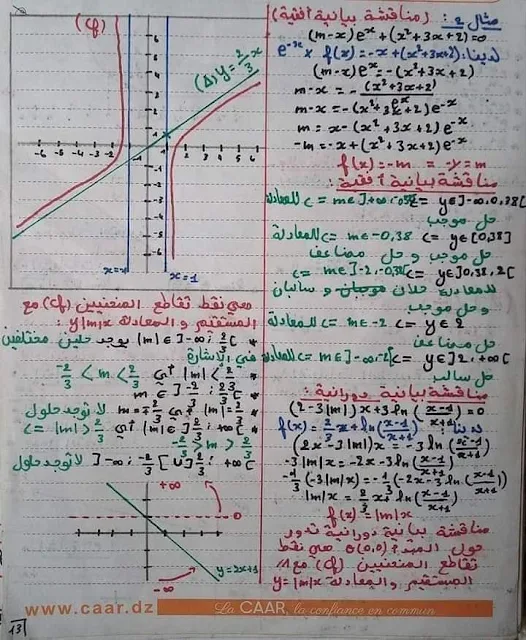 مثال 2: (مناقشة بيانية أفقية)
(m-x)eˣ+(x²+3x+2)=0
لدينا: f(x)=-x+(x²+3x+2)e⁻ˣ
(m-x)eˣ=-(x²+3x+2)
m-x=-(x²+3x+2)/eˣ
m-x=-(x²+3x+2)e⁻ˣ
m=x-(x²+3x+2)e⁻ˣ
-m=-x+(x²+3x+2)e⁻ˣ
f(x)=-m =-y=m
مناقشة بيانية أفقية:
y∈]-∞,0,38[ <= للمعادلة
حل موجب
y∈[0,38] <= m∈-0,38 <= للمعادلة
حل موجب و حل مضاعف
y∈]0,38,2[ <=
للمعادلة حلان سالبان
و حل موجب
y∈2 <= m∈-2 <= للمعادلة
حل مضاعف
y∈]2,+∞[ <= m∈]-∞,-2[ <= للمعادلة
حل سالب
مناقشة بيانية دورانية:
(2-3|m|)x+3ln(x-1/x+1)=0
لدينا f(x)=2/3x+ln(x-1/x+1)
(2x-3|m|x)=-3ln(x-1/x+1)
-3|m|x=-2x-3ln(x-1/x+1)
-1/3(-3|m|x)=-1/3(-2x-3ln(x-1/x+1))
|m|x=2/3x+ln(x-1/x+1)
f(x)=|m|x
مناقشة بيانية دورانية تدور
حول المبتدأ O(0,0) هي نقط
تقاطع المنحنيين (Cf) مع
المستقيم و المعادلة y=|m|x
(Cf)
(Δ) y=2/3x
-6 -5 -4 -3 -2
2 3 4 5 6
x=-1
x=1
هي نقط تقاطع المنحنيين (Cf) مع
المستقيم و المعادلة y=|m|x
* |m|∈]-∞; 2/3[ يوجد حلين مختلفين
في الإشارة
|m|<2/3 أي -2/3<m<2/3
m∈]-2/3; 2/3[
* |m|=2/3 أي m=∓2/3 لا توجد حلول
* |m|∈]2/3; +∞[ أي |m|>2/3 <=
m>2/3
]-∞; -2/3[∪]2/3; +∞[ لا توجد حلول
+∞
y=2x+1
-∞
www.caar.dz
La CAAR, la confiance en commun
13